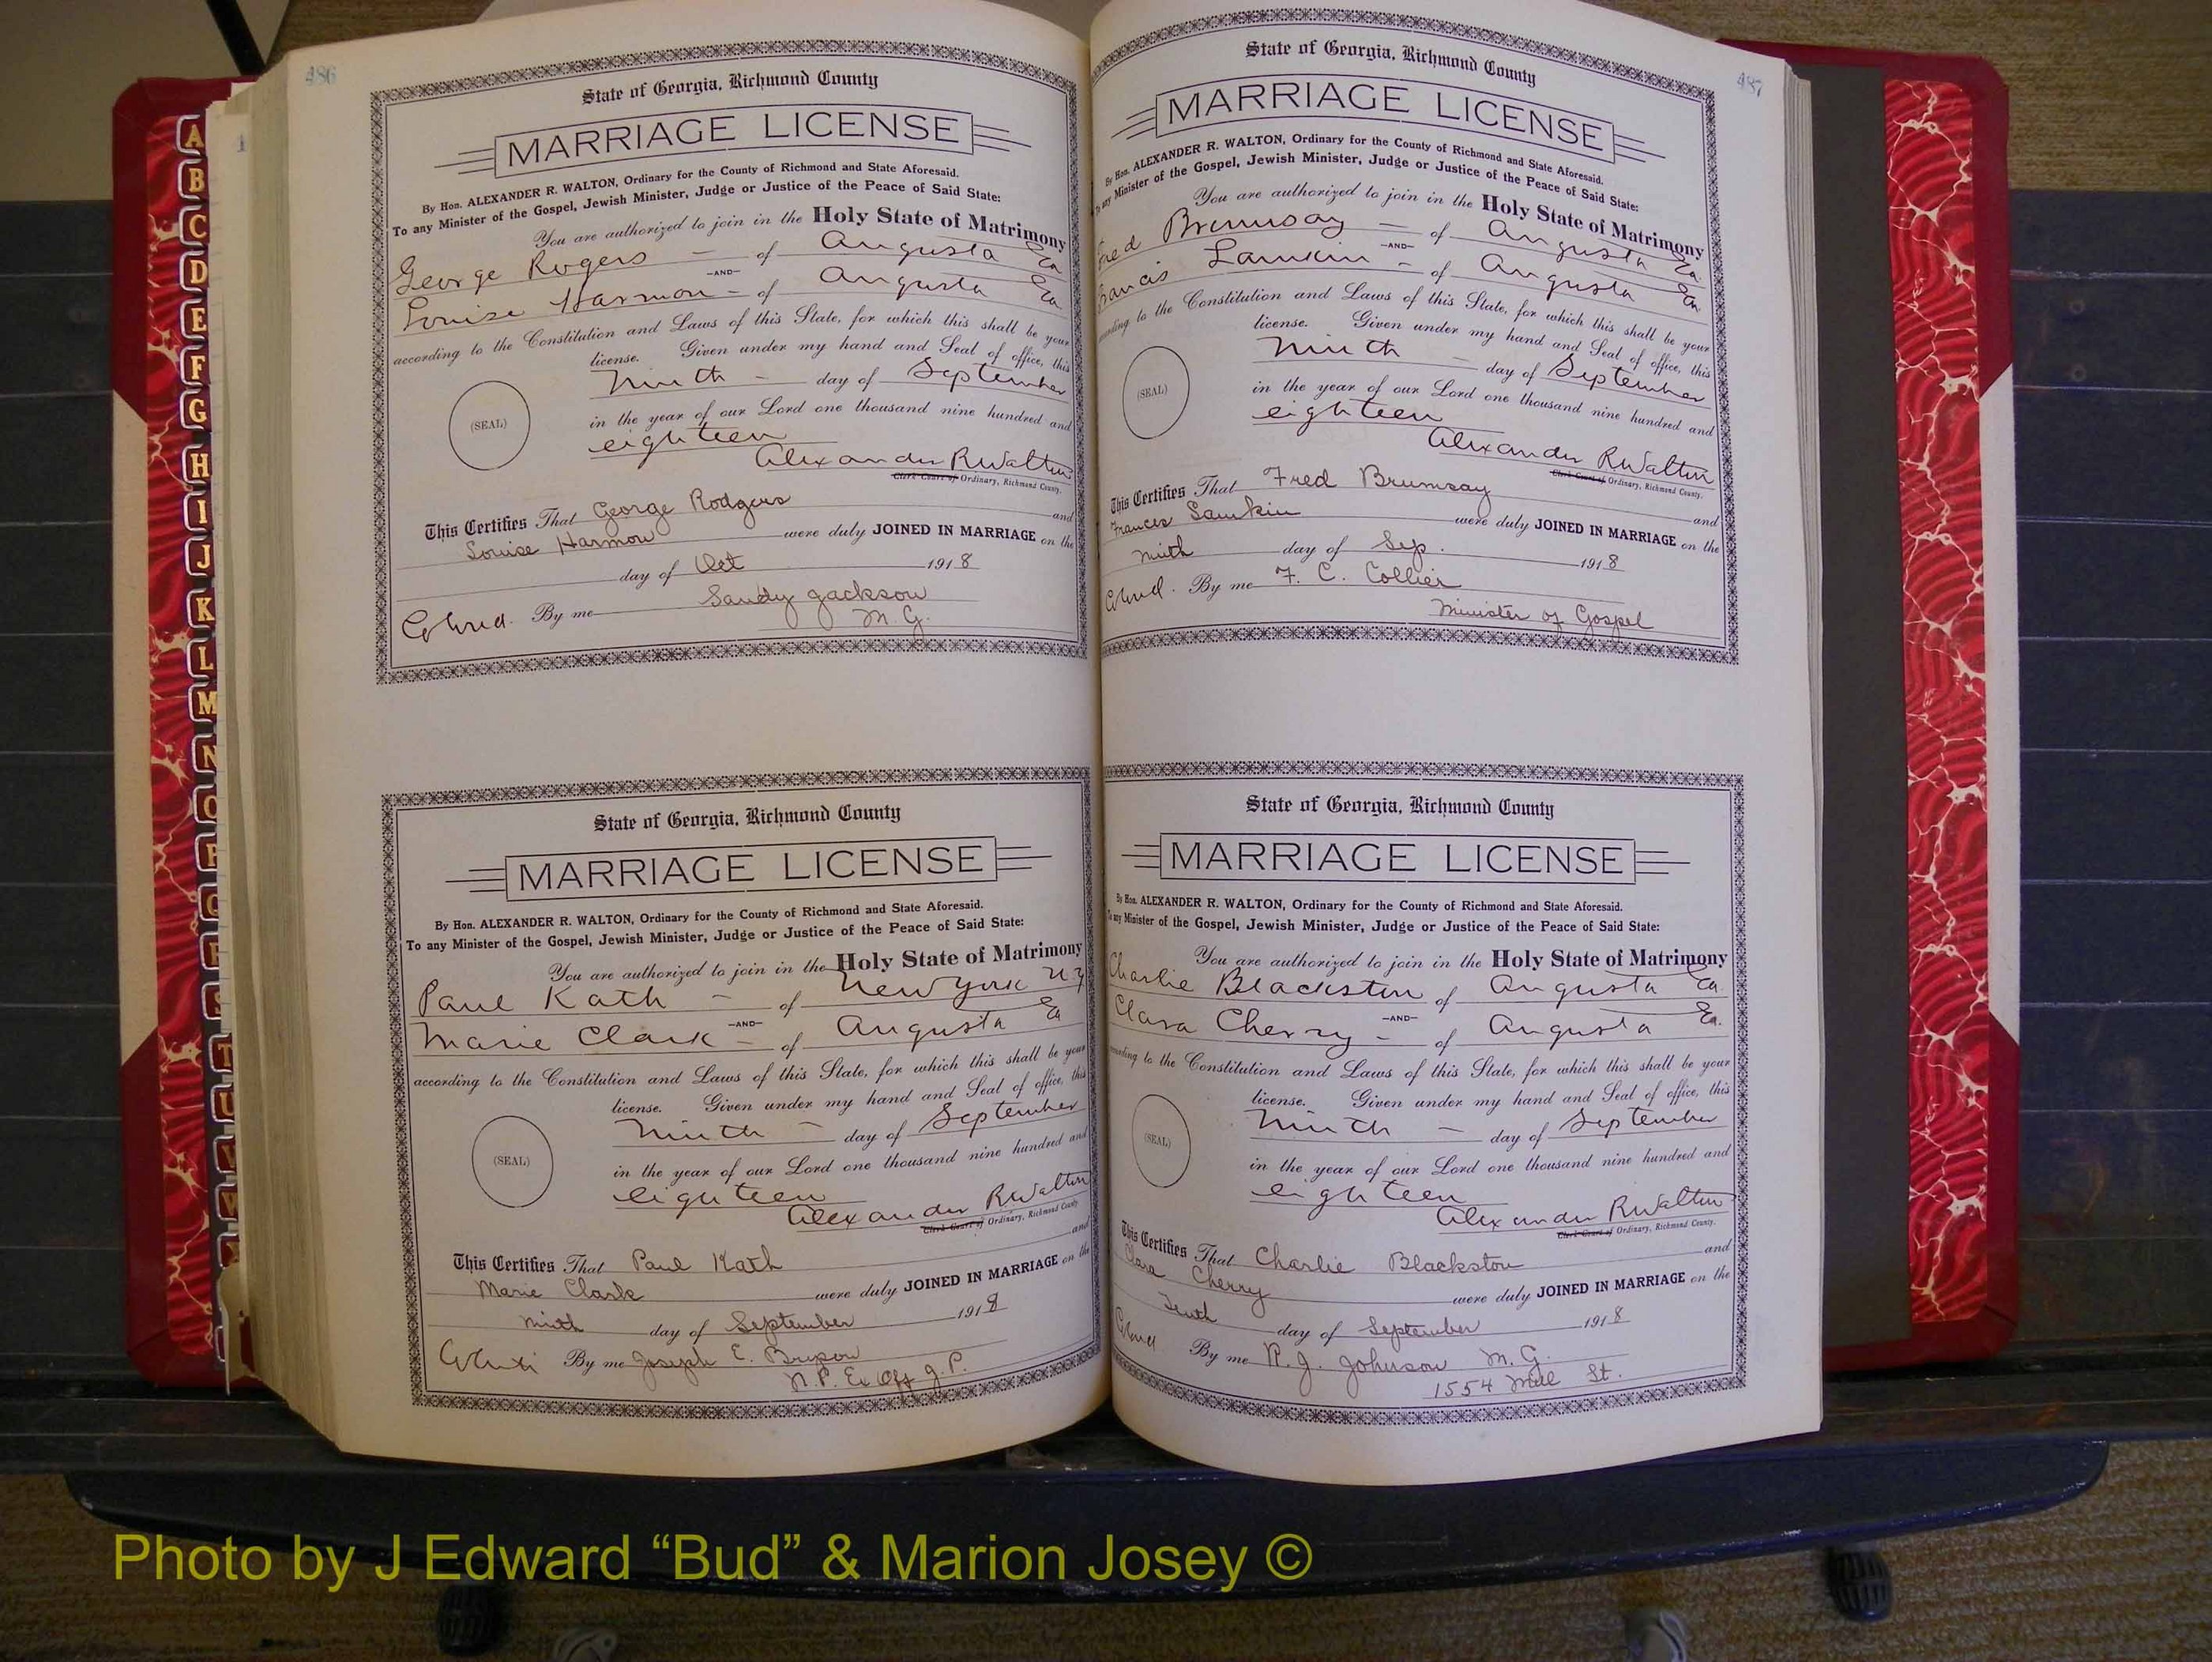 486
State of Georgia, Richmond County
MARRIAGE LICENSE
By Hon. ALEXANDER R. WALTON, Ordinary for the County of Richmond and State Aforesaid.
To any Minister of the Gospel, Jewish Minister, Judge or Justice of the Peace of Said State:
You are authorized to join in the Holy State of Matrimony
George Rogers - of Augusta Ga
-AND-
Louise Harmon - of Augusta Ga
according to the Constitution and Laws of this State, for which this shall be your
license. Given under my hand and Seal of office, this
Ninth - day of September
(SEAL)
in the year of our Lord one thousand nine hundred and
eighteen
Alexander R Walton
Clerk Court of Ordinary, Richmond County.
This Certifies That George Rodgers and
Louise Harmon were duly JOINED IN MARRIAGE on the
day of Oct 1918
Colured. By me Sandy Jackson
M. G.
State of Georgia, Richmond County
MARRIAGE LICENSE
By Hon. ALEXANDER R. WALTON, Ordinary for the County of Richmond and State Aforesaid.
To any Minister of the Gospel, Jewish Minister, Judge or Justice of the Peace of Said State:
You are authorized to join in the Holy State of Matrimony
Paul Kath - of New York N Y
-AND-
Marie Clark - of Augusta Ga
according to the Constitution and Laws of this State, for which this shall be your
license. Given under my hand and Seal of office, this
Ninth - day of September
(SEAL)
in the year of our Lord one thousand nine hundred and
eighteen
Alexander R Walton
Clerk Court of Ordinary, Richmond County
This Certifies That Paul Kath and
Marie Clark were duly JOINED IN MARRIAGE on the
ninth day of September 1918
By me Joseph E. Bryson
N. P. Ex Off J. P.
487
State of Georgia, Richmond County
MARRIAGE LICENSE
By Hon. ALEXANDER R. WALTON, Ordinary for the County of Richmond and State Aforesaid.
To any Minister of the Gospel, Jewish Minister, Judge or Justice of the Peace of Said State:
You are authorized to join in the Holy State of Matrimony
Fred Brumsay - of Augusta Ga.
-AND-
Francis Lamkin - of Augusta Ga.
according to the Constitution and Laws of this State, for which this shall be your
license. Given under my hand and Seal of office, this
Ninth - day of September
(SEAL)
in the year of our Lord one thousand nine hundred and
eighteen
Alexander R Walton
Clerk Court of Ordinary, Richmond County.
This Certifies That Fred Brumsay and
Frances Lamkin were duly JOINED IN MARRIAGE on the
ninth day of Sep. 1918
By me F. C. Collier
Minister of Gospel
State of Georgia, Richmond County
MARRIAGE LICENSE
By Hon. ALEXANDER R. WALTON, Ordinary for the County of Richmond and State Aforesaid.
To any Minister of the Gospel, Jewish Minister, Judge or Justice of the Peace of Said State:
You are authorized to join in the Holy State of Matrimony
Charlie Blackston of Augusta Ga.
-AND-
Clara Cherry - of Augusta Ga.
according to the Constitution and Laws of this State, for which this shall be your
license. Given under my hand and Seal of office, this
Ninth - day of September
(SEAL)
in the year of our Lord one thousand nine hundred and
eighteen
Alexander R Walton
Clerk Court of Ordinary, Richmond County.
This Certifies That Charlie Blackston and
Clara Cherry were duly JOINED IN MARRIAGE on the
Tenth day of September 1918
By me R. J. Johnson M. G.
1554 Mill St.
A
B
C
D
E
F
G
H
I
J
K
L
M
N
O
P
Q
R
S
T
U
V
W
Photo by J Edward “Bud” & Marion Josey ©